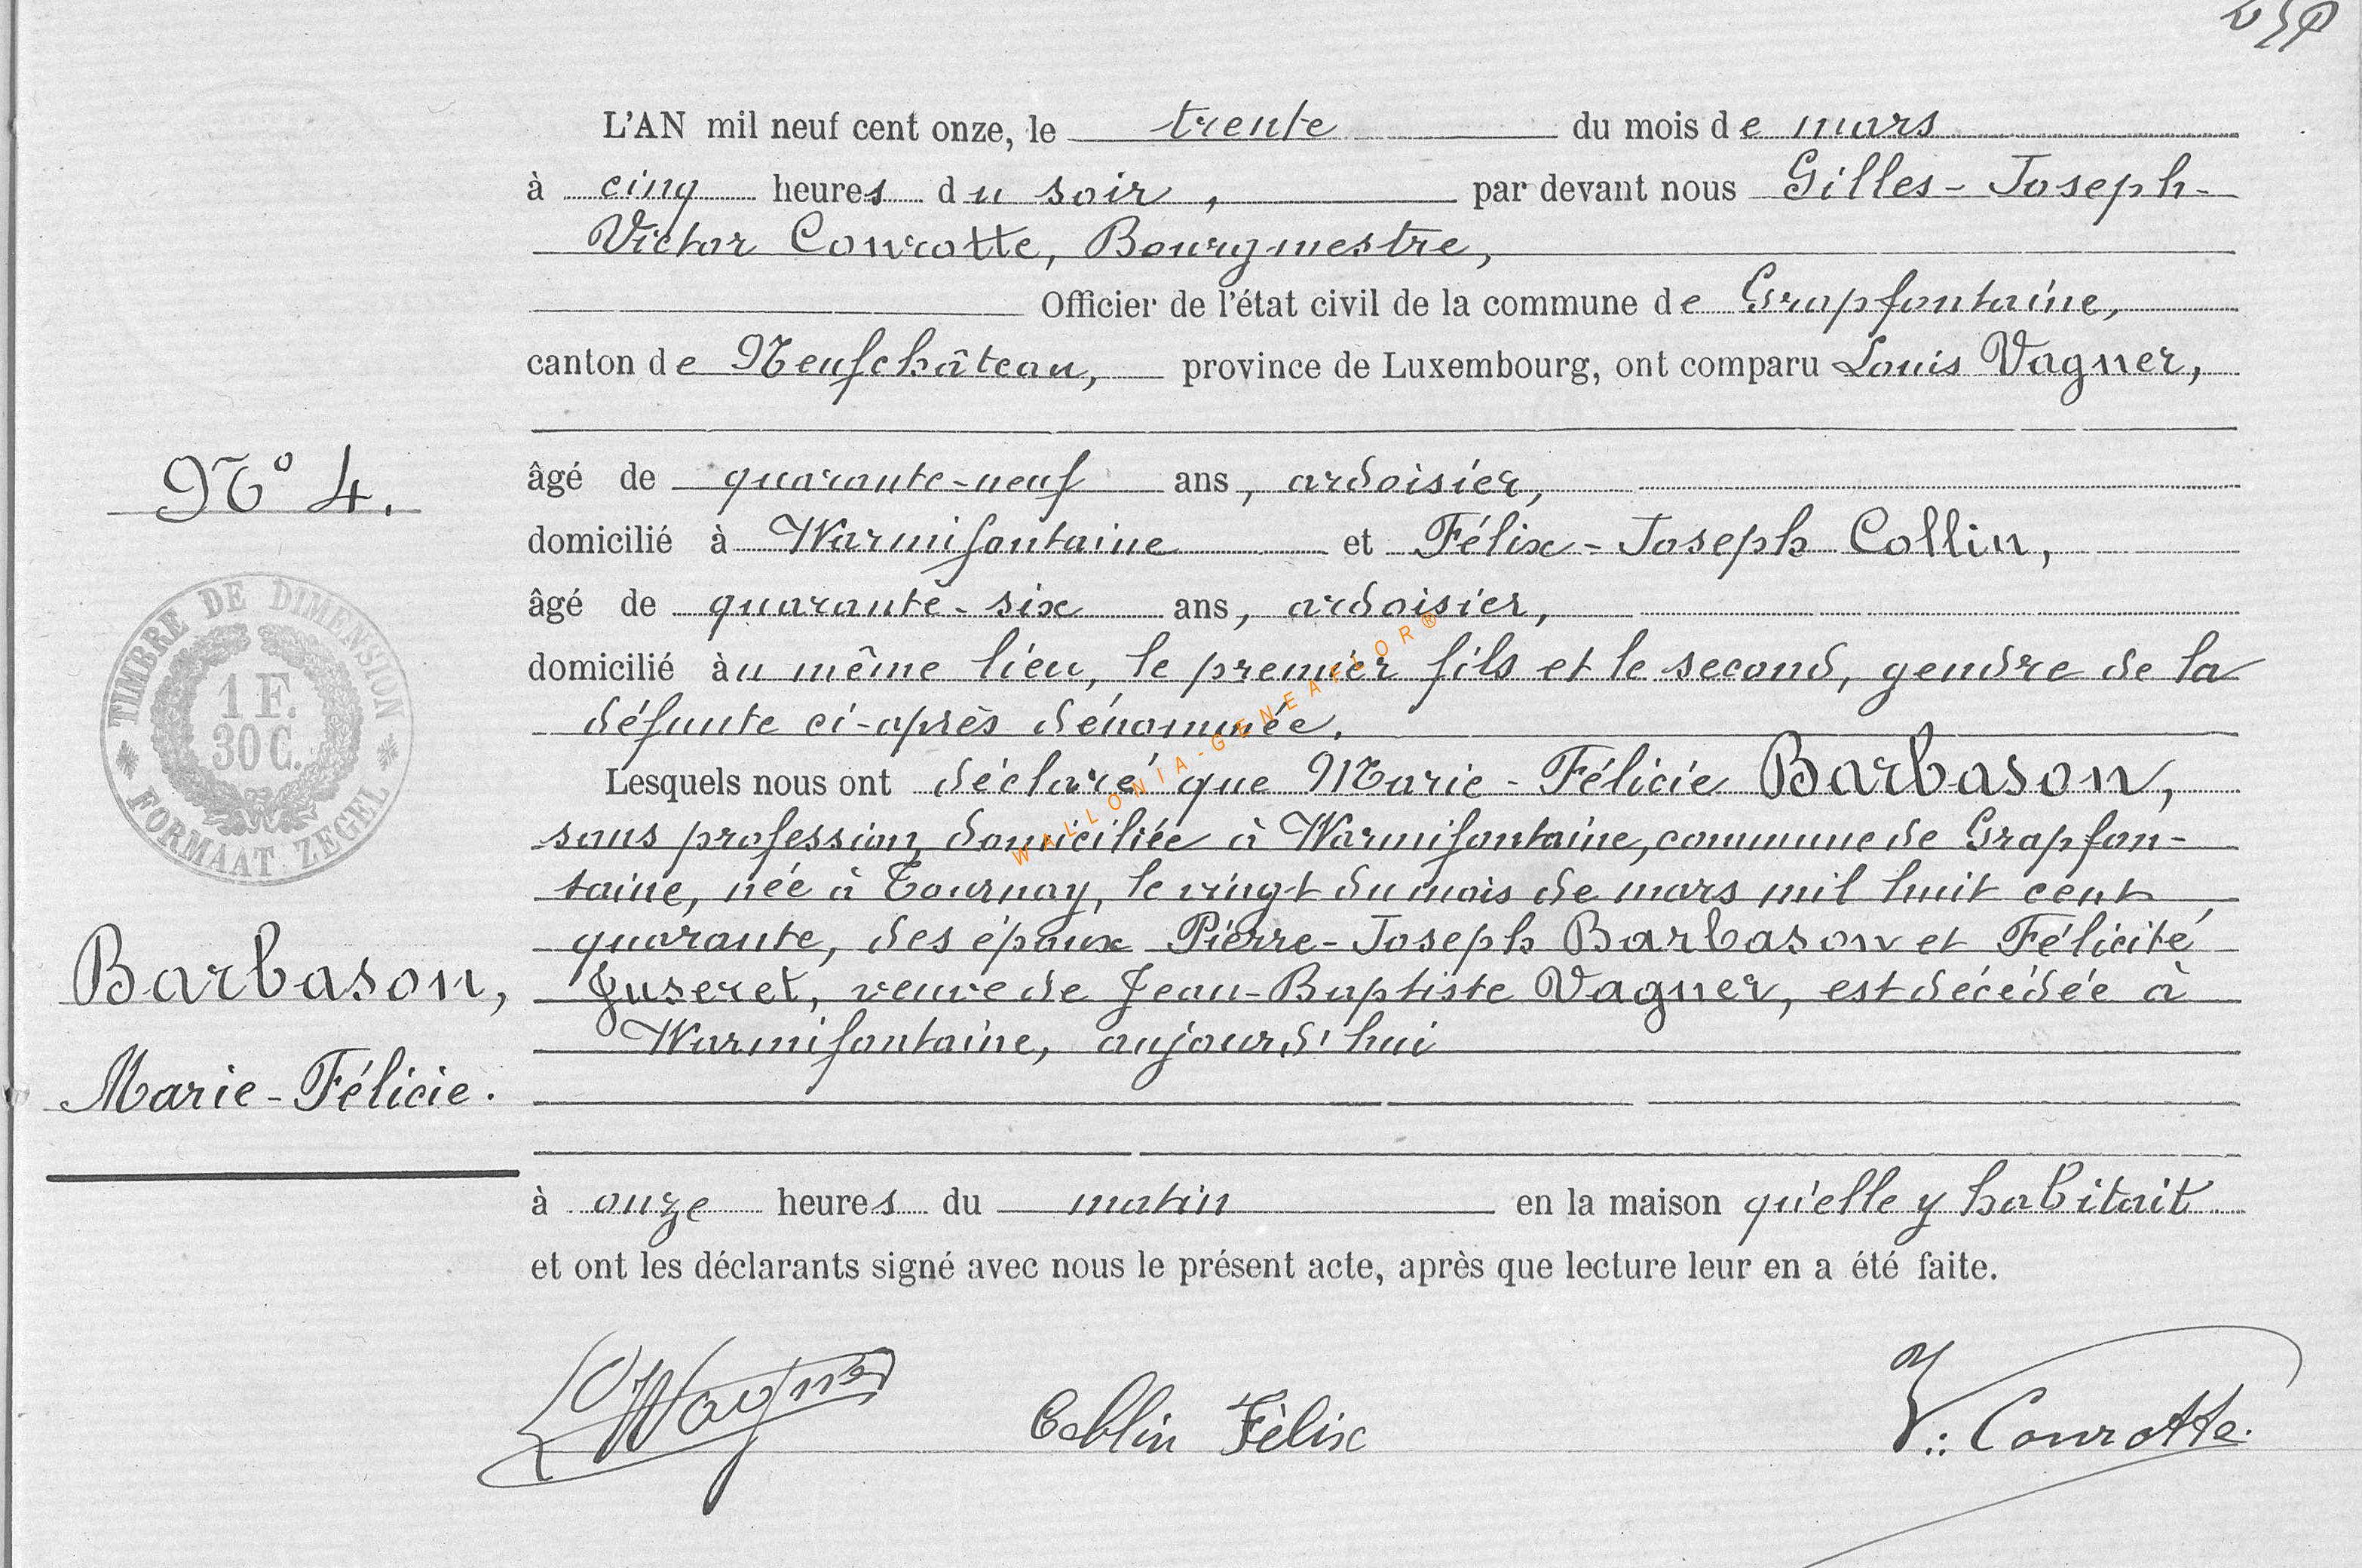 L'AN mil neuf cent onze, le trente du mois de mars
à cinq heures du soir, par devant nous Gilles-Joseph-
Victor Conrotte, Bourgmestre,
Officier de l'état civil de la commune de Grapfontaine,
canton de Neufchâteau, province de Luxembourg, ont comparu Louis Vagner,
N° 4.
âgé de quarante-neuf ans, ardoisier,
domicilié à Warmifontaine et Félix-Joseph Collin,
âgé de quarante-six ans, ardoisier,
domicilié au même lieu, le premier fils et le second, gendre de la
défunte ci-après dénommée.
TIMBRE DE DIMENSION
1 F.
30 C.
FORMAAT ZEGEL
Lesquels nous ont déclaré que Marie-Félicie Barbason,
sans profession, domiciliée à Warmifontaine, commune de Grapfon-
taine, née à Tournay, le vingt du mois de mars mil huit cent
quarante, des époux Pierre-Joseph Barbason et Félicité
Juseret, veuve de Jean-Baptiste Vagner, est décédée à
Warmifontaine, aujourd'hui
Barbason,
Marie-Félicie.
à onze heures du matin en la maison qu'elle y habitait
et ont les déclarants signé avec nous le présent acte, après que lecture leur en a été faite.
Collin Félix
V. Conrotte.
WALLONIA-GENEAFLOR®